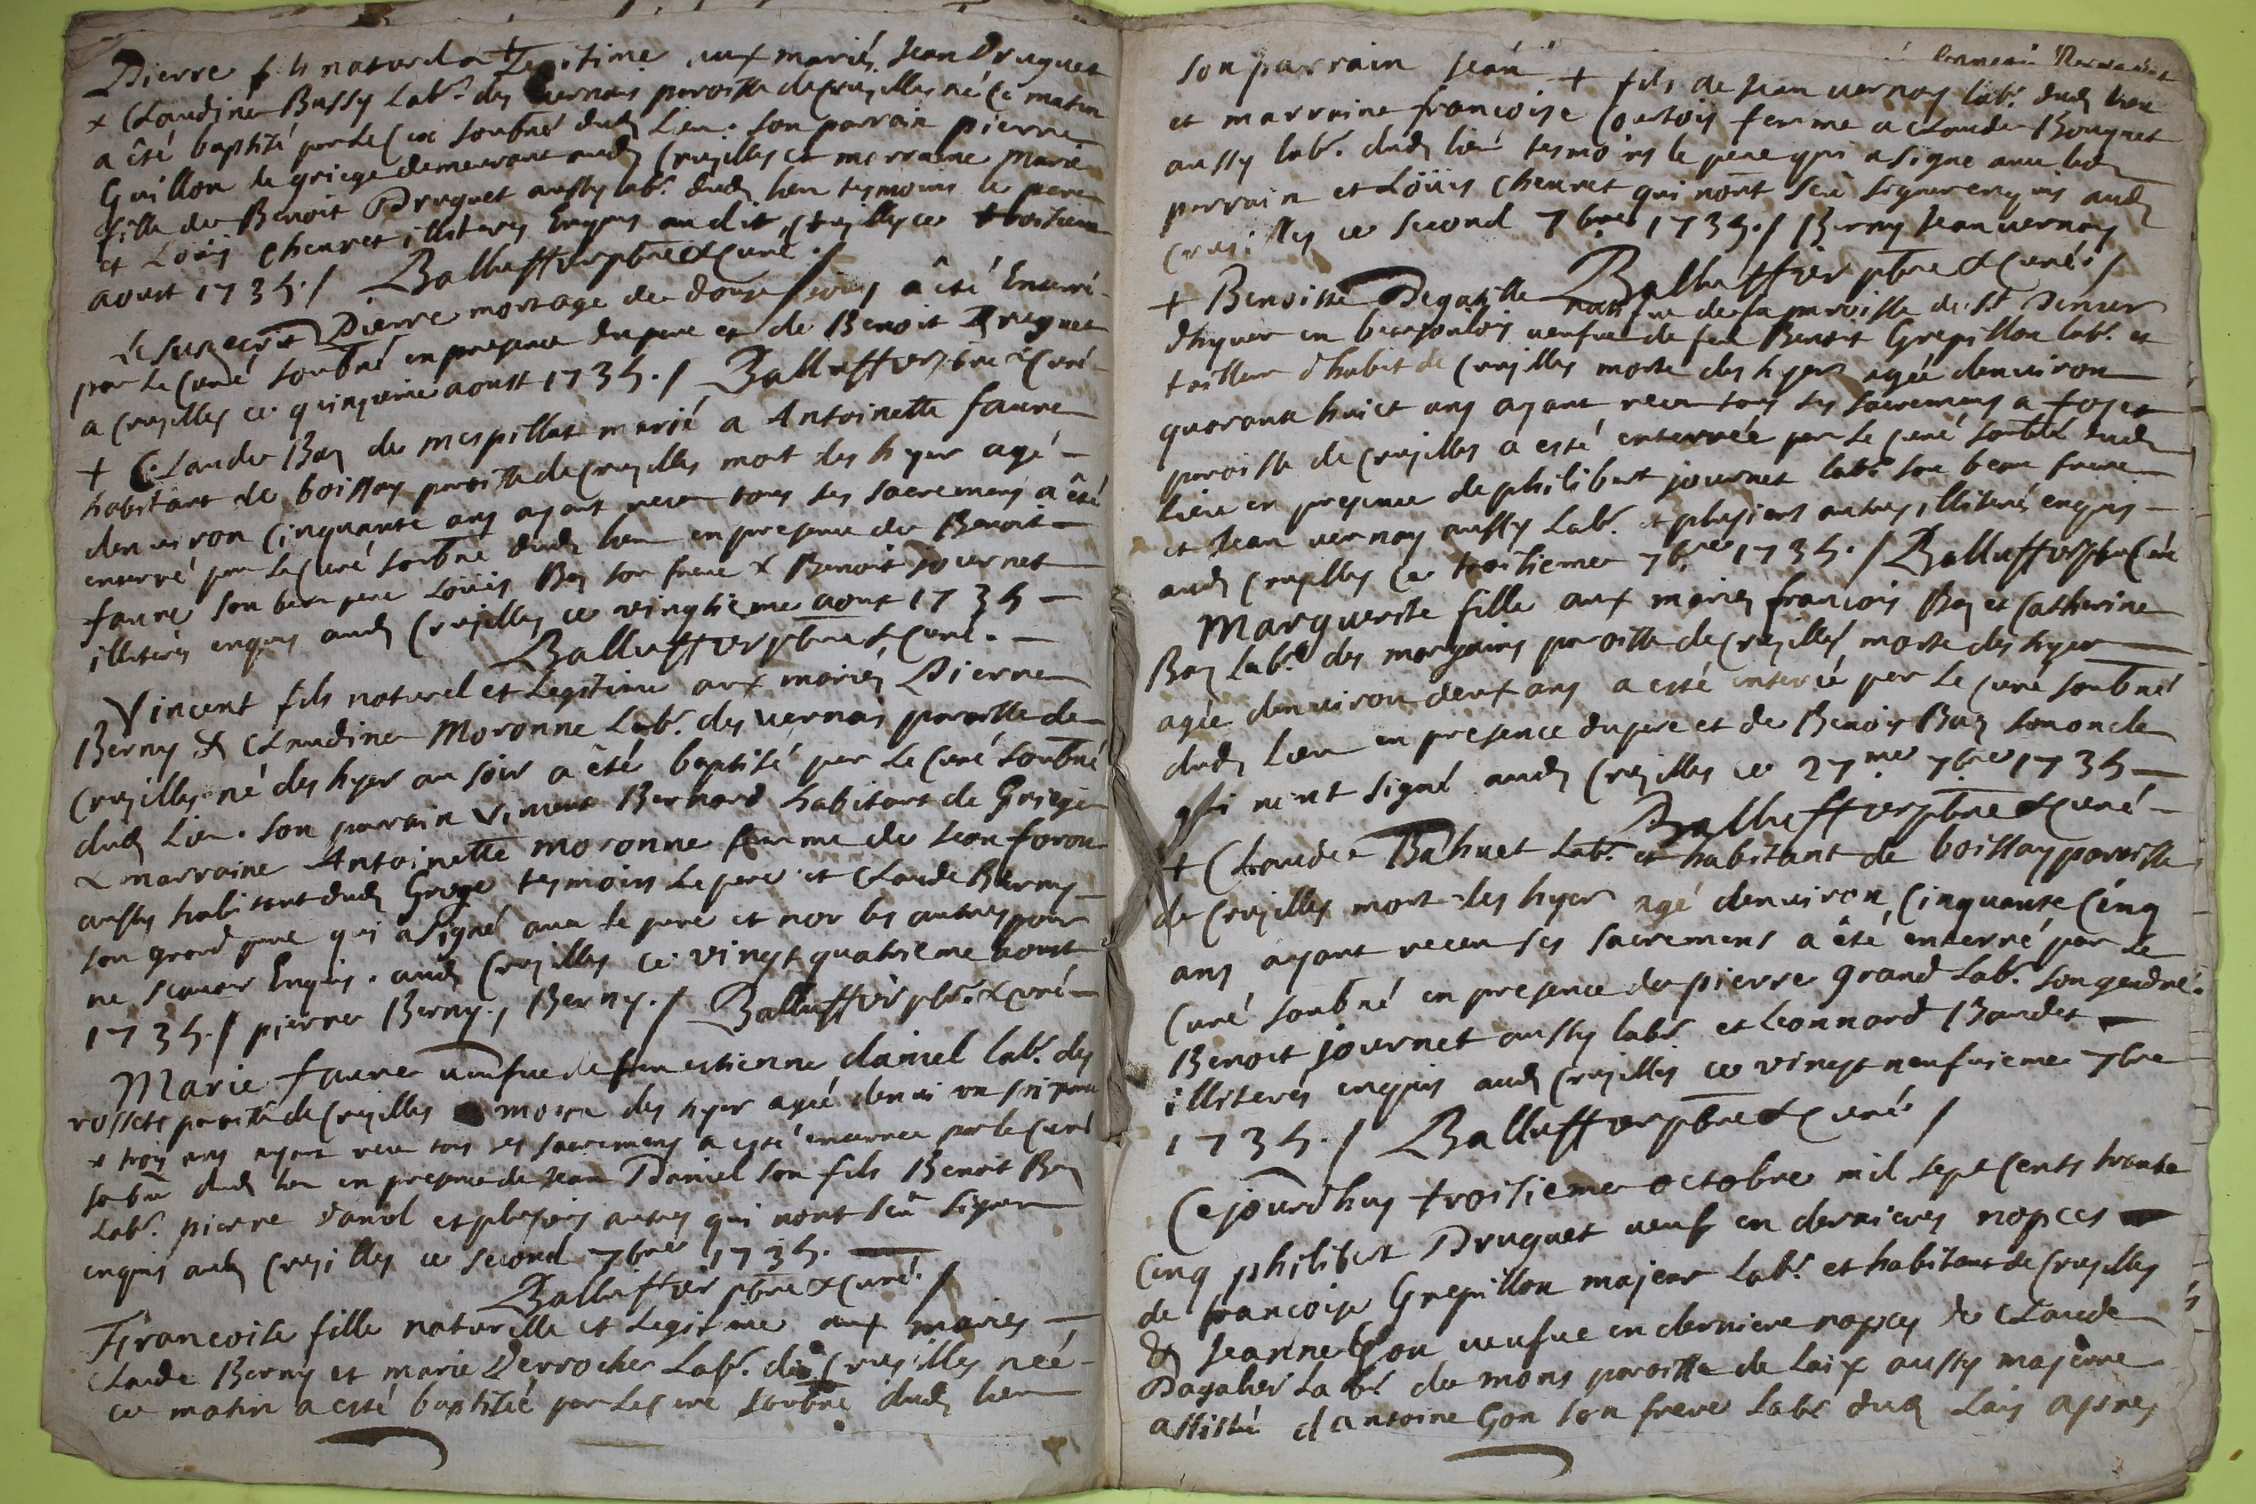 Pierre fils naturel et Legitime aux mariés Jean Druguet
& Claudine Bussy Labr. des vernais paroisse de crusilles né Ce matin
a êté baptizé par Le Curé soubné dudt Lieu. son parrain pierre
Guillon de griege demeurant audt Crusilles et marraine Marie
fille de Benoit Druguet aussy labr. dudt lieu tesmoins le pere
et Loüis Cheuret illiterés Enquis audit Crusilles ce troisieme
aoust 1735./ Balluffier pbre & curé./
Le susecrit Pierre mort agé de douze jours a êté Enterré
par Le Curé soubné en presence du pere et de Benoit Druguet
a Crusilles ce quinzieme aoust 1735./ Balluffier pbre & Curé
+ Claude Bay de mespillat marié a Antoinette faure
habitant de boissay paroisse de Crusilles mort des hyer agé
denuiron Cinquante ans ayant receu tous ses sacremens a êté
enterré par Le Curé soubné dudt lieu en presence de Benoit
faure son beau pere Loüis Bay son frere & Benoit Journet
illiterés enquis audt Crusilles ce vingtieme aoust 1735
Balluffier pbre & curé.
Vincent fils naturel et Legitime aux mariés Pierre
Berny & Claudine Moronne Labr. des vernais paroisse de
Crusilles né des hyer au soir a êté baptisé par Le Curé soubné
dudt Lieu. son parrain Vincent Bernard habitant de Griege
& marraine Antoinette moronne femme de Jean foron
aussy habitant dudt Griege tesmoins Le pere et Claude Berny
son grand pere qui a signé auec le pere et non les autres pour
ne scauoir Enquis. audt Crusilles ce vingt quatrieme aoust
1735./ pierre Berny., Berny./ Balluffier pbr. & curé
Marie faure veufue de feu estienne daniel labr. des
rossets paroisse de Crusilles morte des hyer agée denuiron soixante
& trois ans ayant receu tous ses sacremens a esté enterrée par le Curé
soubné dudt lieu en presence de Jean Daniel son fils Benoit Bay
Labr. pierre daniel et plusieurs autres qui nont sceû signer
enquis audt Crusilles ce second 7bre 1735.
Balluffier pbre & curé./
Francoise fille naturelle et Legitime aux mariés
Claude Berny et marie Derroche Labr. de Crusilles neé
ce matin a esté baptiseé par Le Curé soubné dudt lieu
son parrain Jean + fils de Jean vernay labr. dudt lieu
et marraine francoise Cortois femme a Claude Bouquet
aussy labr. dudt lieu tesmoins le pere qui a signé auec led
parrain et Loüis Cheuret qui nont sceû signer enquis audt
Crusilles ce second 7bre 1735./ Berny Jean vernay
Balluffier pbre & curé./
+ Benoiste Degatille natifue de la paroisse de St
veufue de feu Benoit Grepillon labr. et
tailleur dhabit de Crusilles morte des hyer agée denuiron
quarante huict ans ayant receu tous ses sacremens a
paroisse de Crusilles a esté enterrée par Le Curé soubné dudt
lieu en presence de philibert journet labr. son beau frere
et Jean vernay aussy Labr. et plusieurs autres illiterés enquis
audt Crusilles ce troisieme 7bre 1735./ Balluffier pbre & Curé
Marguerite fille aux mariés francois Bay et Catherine
Bay labr. des morgains paroisse de Crusilles morte des hyer
agée denuiron deux ans a esté enterrée par Le Curé soubné
dudt lieu en presence du pere et de Benoit Bay son oncle
qui nont signé audt Crusilles ce 27me 7bre 1735
Balluffier pbre & curé
+ Claude Bahuet Labr. et habitant de boissay paroisse
de Crusilles mort des hyer agé denuiron Cinquante Cinq
ans ayant receu ses sacremens a êté enterré par Le
Curé soubné en presence de pierre grand Labr. son gendre.
Benoit journet aussy labr. et Leonnard Baudet
illiterés enquis audt Crusilles ce vingt neufuieme 7bre
1735./ Balluffier pbre & curé/
Cejourdhuy troisieme octobre mil sept Cents trente
Cinq philibert Druguet veuf en dernieres nopces
de francoise Grepillon majeur Labr. et habitant de Crusilles
& Jeanne Gon veufue en derniere nopces de Claude
Pagaher Labr. de mons paroisse de Laix aussy majeure
assisté dantoine Gon son frere Labr dudt Laix apres